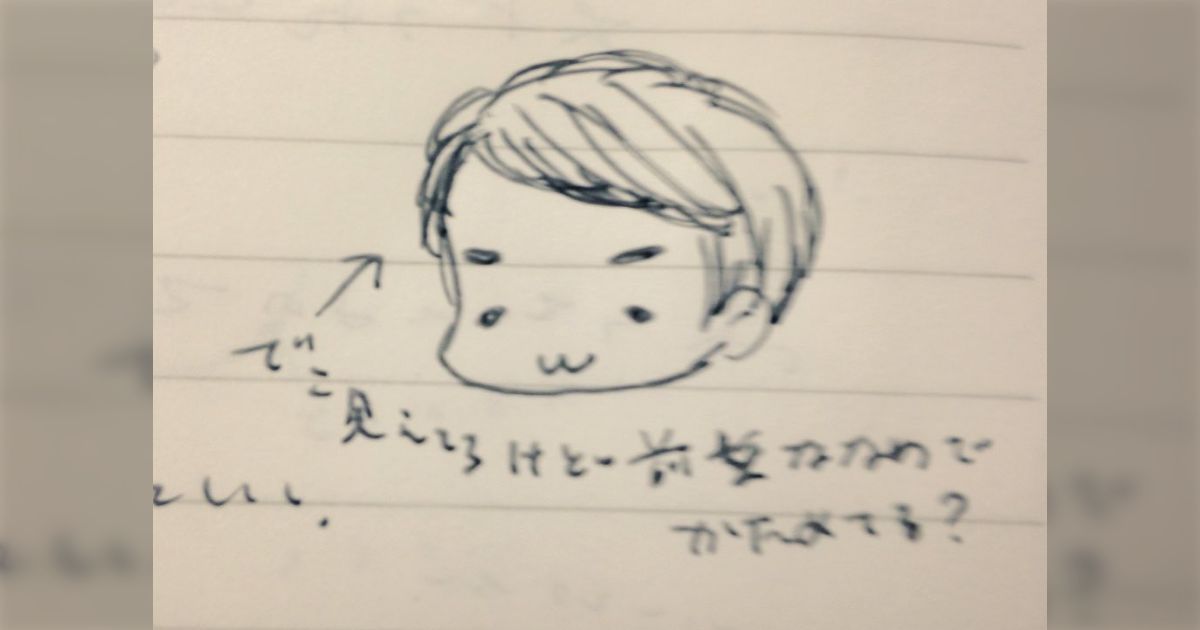 でこ
見えてるけど前髪ななめで
かためてる?
といい.